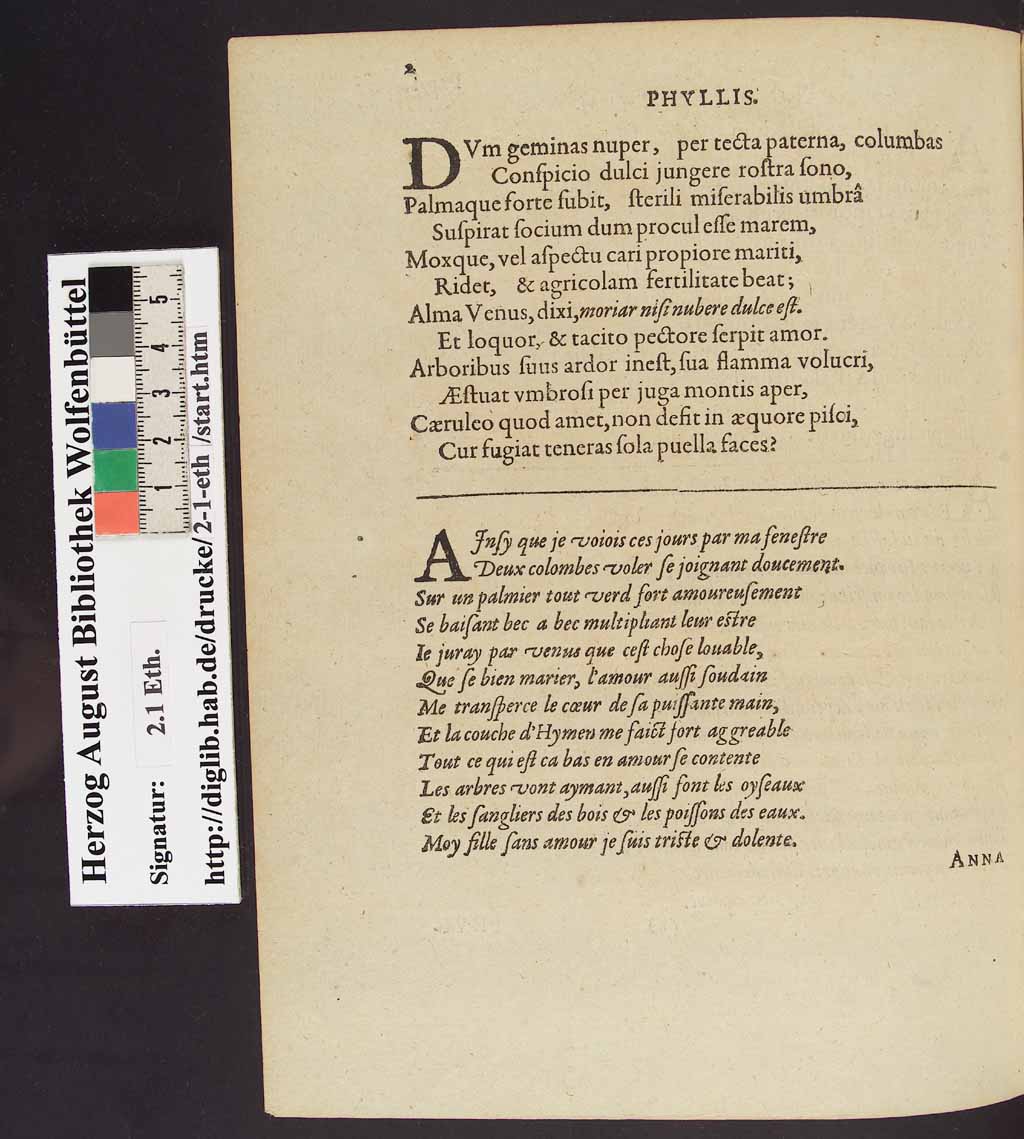 2
PHYLLIS.
DVm geminas nuper, per tecta paterna, columbas
Conſpicio dulci jungere roſtra ſono,
Palmaque forte ſubit, ſterili miſerabilis umbrâ
Suſpirat ſocium dum procul eſſe marem,
Moxque, vel aſpectu cari propiore mariti,
Ridet, & agricolam fertilitate beat;
Alma Venus, dixi, moriar niſi nubere dulce eſt.
Et loquor, & tacito pectore ſerpit amor.
Arboribus ſuus ardor ineſt, ſua flamma volucri,
Æſtuat vmbroſi per juga montis aper,
Cæruleo quod amet, non defit in æquore piſci,
Cur fugiat teneras ſola puella faces?
AInſy que je voiois ces jours par ma feneſtre
Deux colombes voler ſe joignant doucement.
Sur un palmier tout verd fort amoureuſement
Se baiſant bec a bec multipliant leur eſtre
Ie juray par venus que ceſt choſe louable,
Que ſe bien marier, l'amour auſſi ſoudain
Me tranſperce le cœur de ſa puiſſante main,
Et la couche d'Hymen me faict fort aggreable
Tout ce qui eſt ca bas en amour ſe contente
Les arbres vont aymant, auſſi font les oyſeaux
Et les ſangliers des bois & les poiſſons des eaux.
Moy fille ſans amour je ſuis triſte & dolente.
ANNA
Herzog August Bibliothek Wolfenbüttel
Signatur: 2.1 Eth.
http://diglib.hab.de/drucke/2-1-eth /start.htm
1 2 3 4 5